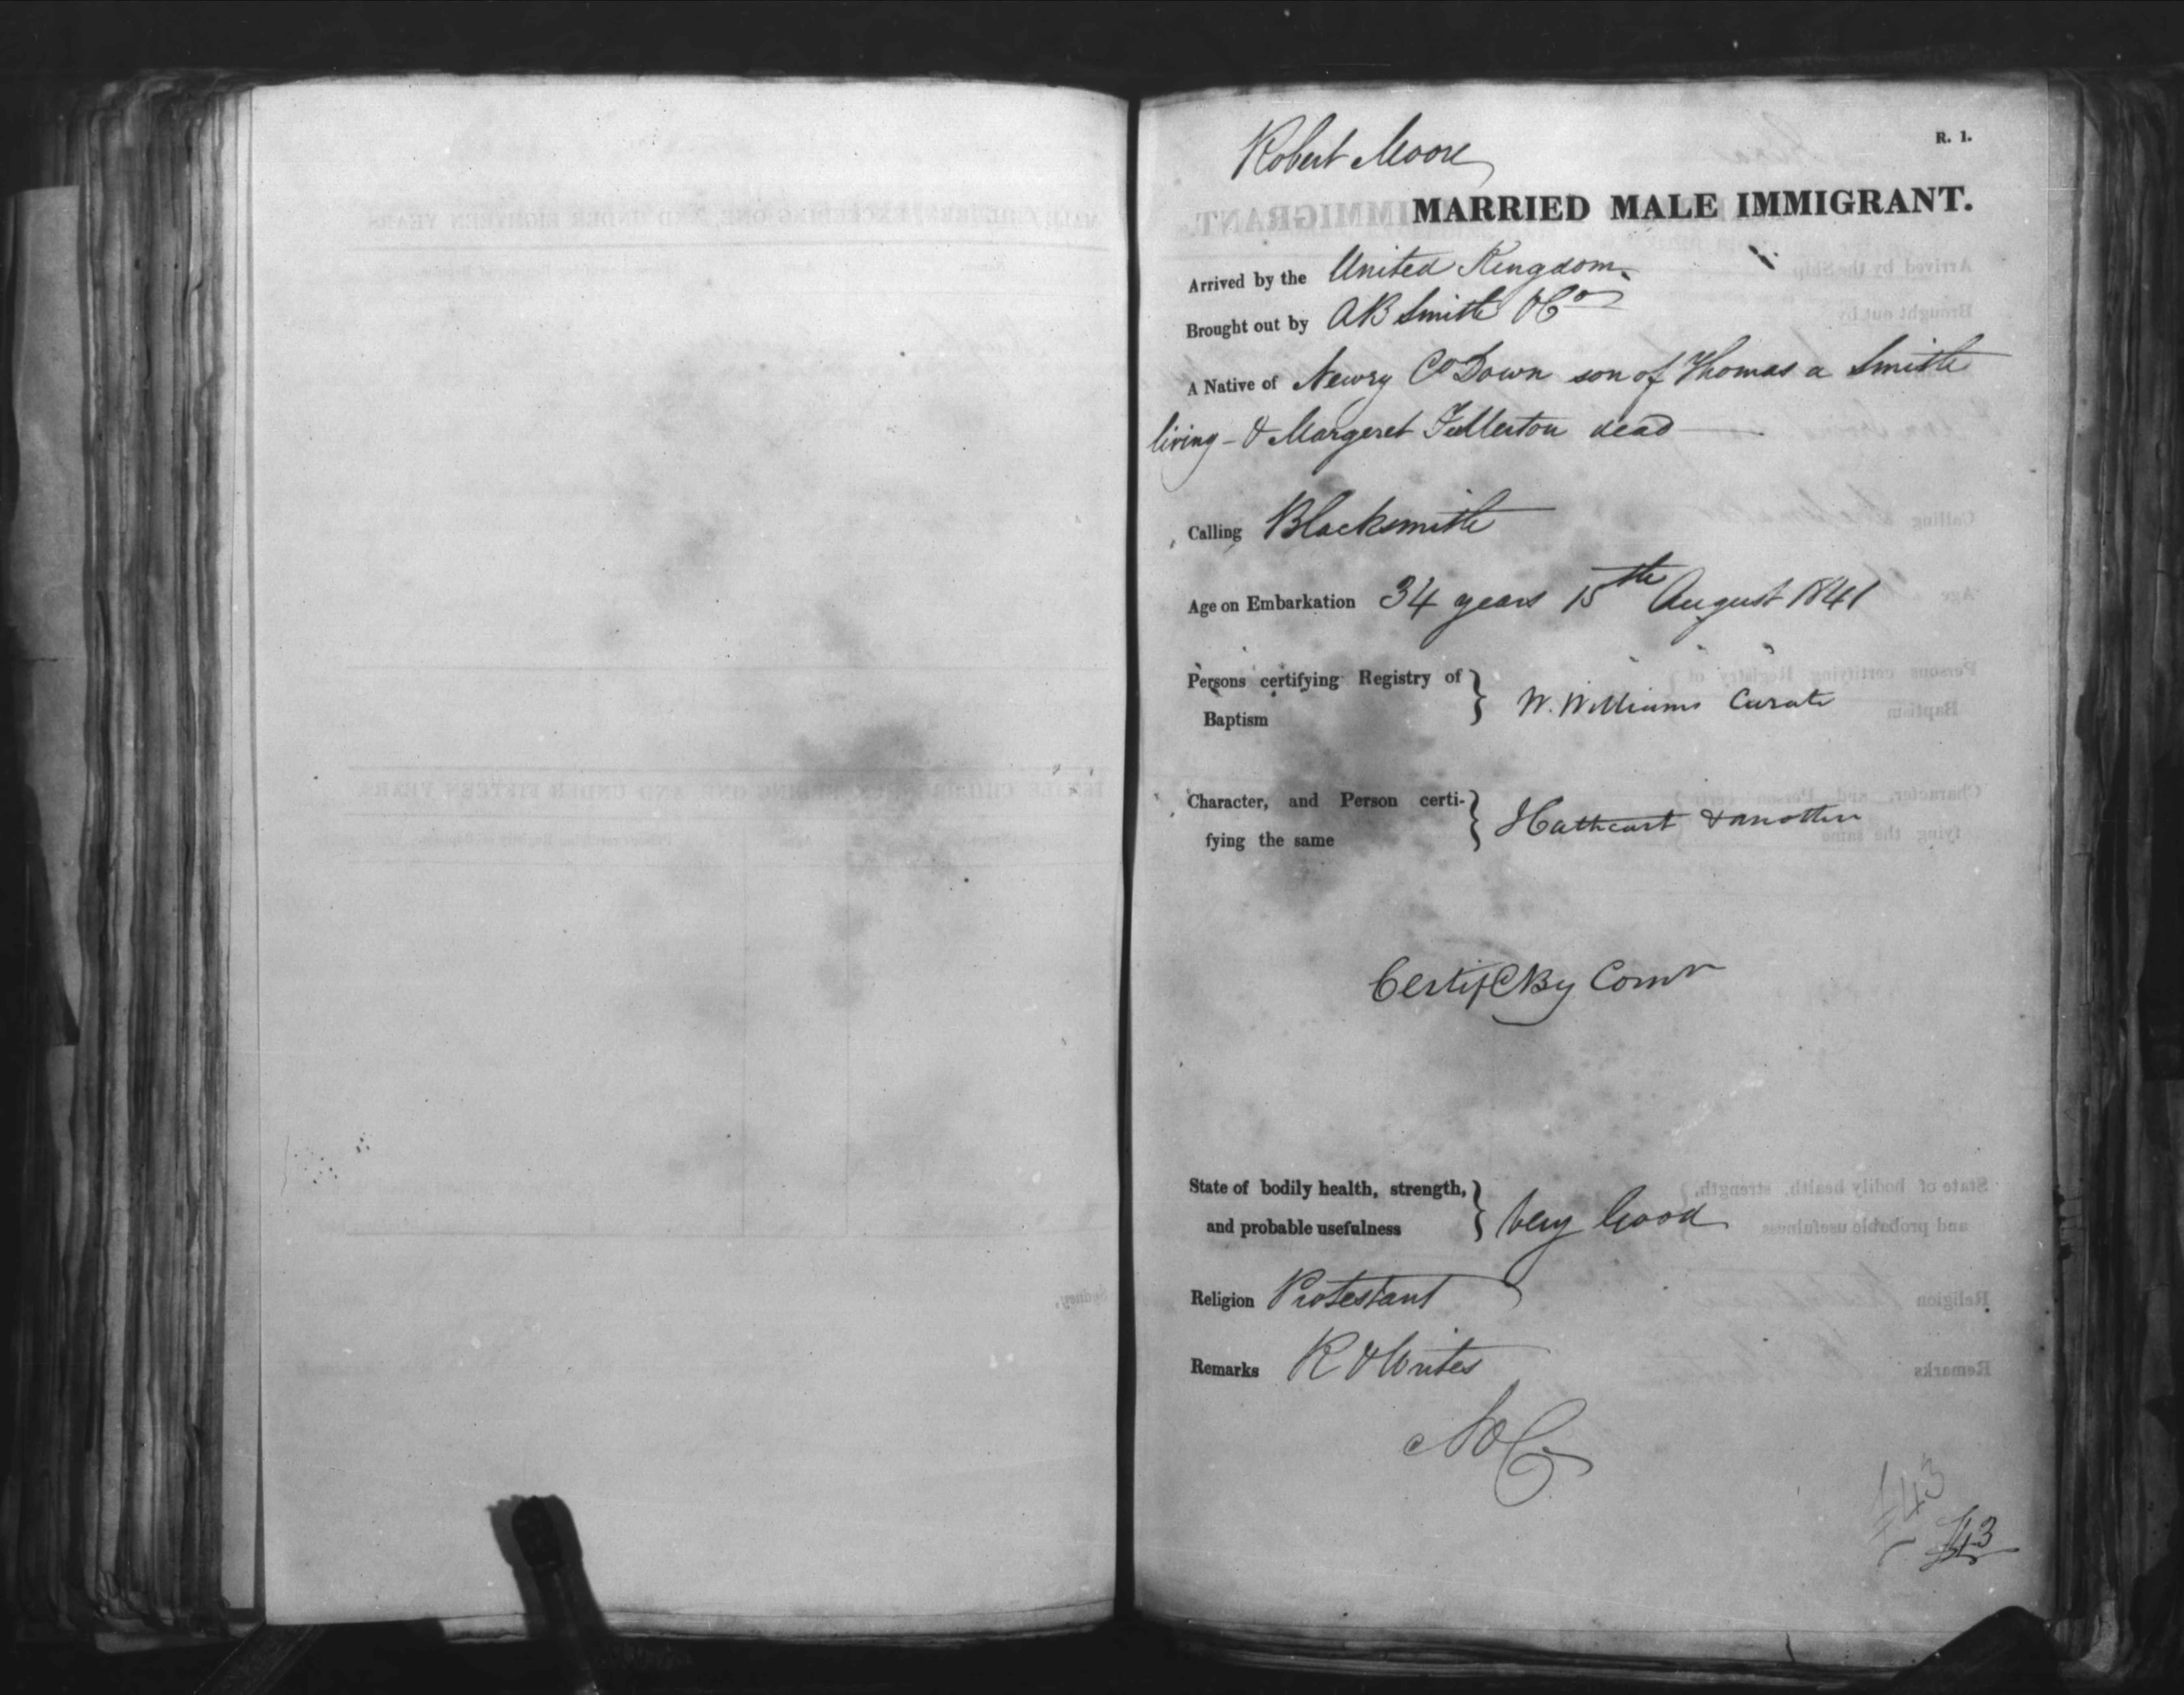 Robert Moore
R. 1.
MARRIED MALE IMMIGRANT.
Arrived by the United Kingdom
Brought out by AB Smith & Co
A Native of Newry Co Down son of Thomas a Smith
living - & Margeret Fullerton dead
Calling Blacksmith
Age on Embarkation 34 years 15th August 1841
Persons certifying Registry of
Baptism } W. Williams Curate
Character, and Person certi-
fying the same } Hathcart & another
Certif By Comr
State of bodily health, strength,
and probable usefulness } Very Good
Religion Protestant
Remarks R & Writes
43
43